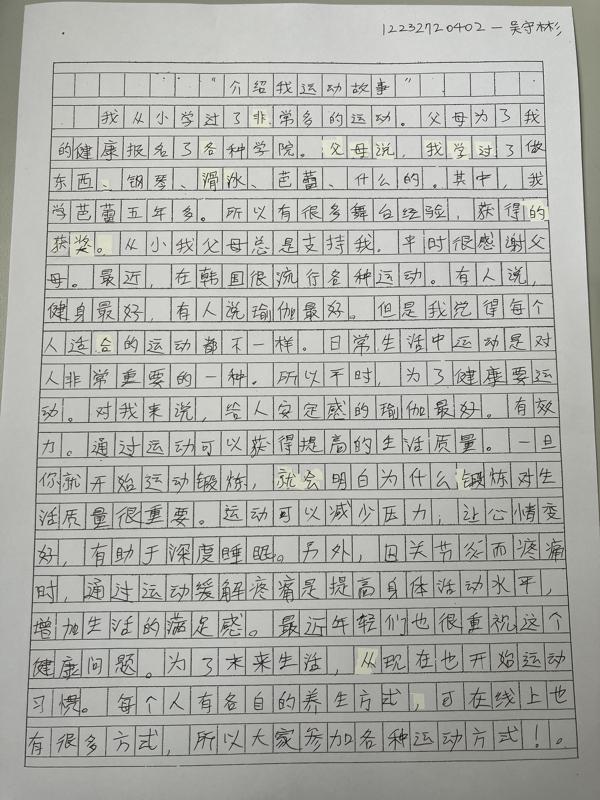 12232720402－吴守彬
“介绍我运动故事”
我从小学过了非常多的运动。父母为了我
的健康报名了各种学院。父母说，我学过了做
东西、钢琴、滑冰、芭蕾、什么的。其中，我
学芭蕾五年多。所以有很多舞台经验，获得的
获奖。从小我父母总是支持我。平时很感谢父
母。最近，在韩国很流行各种运动。有人说，
健身最好，有人说瑜伽最好。但是我觉得每个
人适合的运动都不一样。日常生活中运动是对
人非常重要的一种。所以平时，为了健康要运
动。对我来说，给人安定感的瑜伽最好。有效
力。通过运动可以获得提高的生活质量。一旦
你就开始运动锻炼，就会明白为什么锻炼对生
活质量很重要。运动可以减少压力；让心情变
好，有助于深度睡眠。另外，因关节炎而疼痛
时，通过运动缓解疼痛是提高身体活动水平，
增加生活的满足感。最近年轻们也很重视这个
健康问题。为了未来生活，从现在也开始运动
习惯。每个人有各自的养生方式，可在线上也
有很多方式，所以大家参加各种运动方式！。